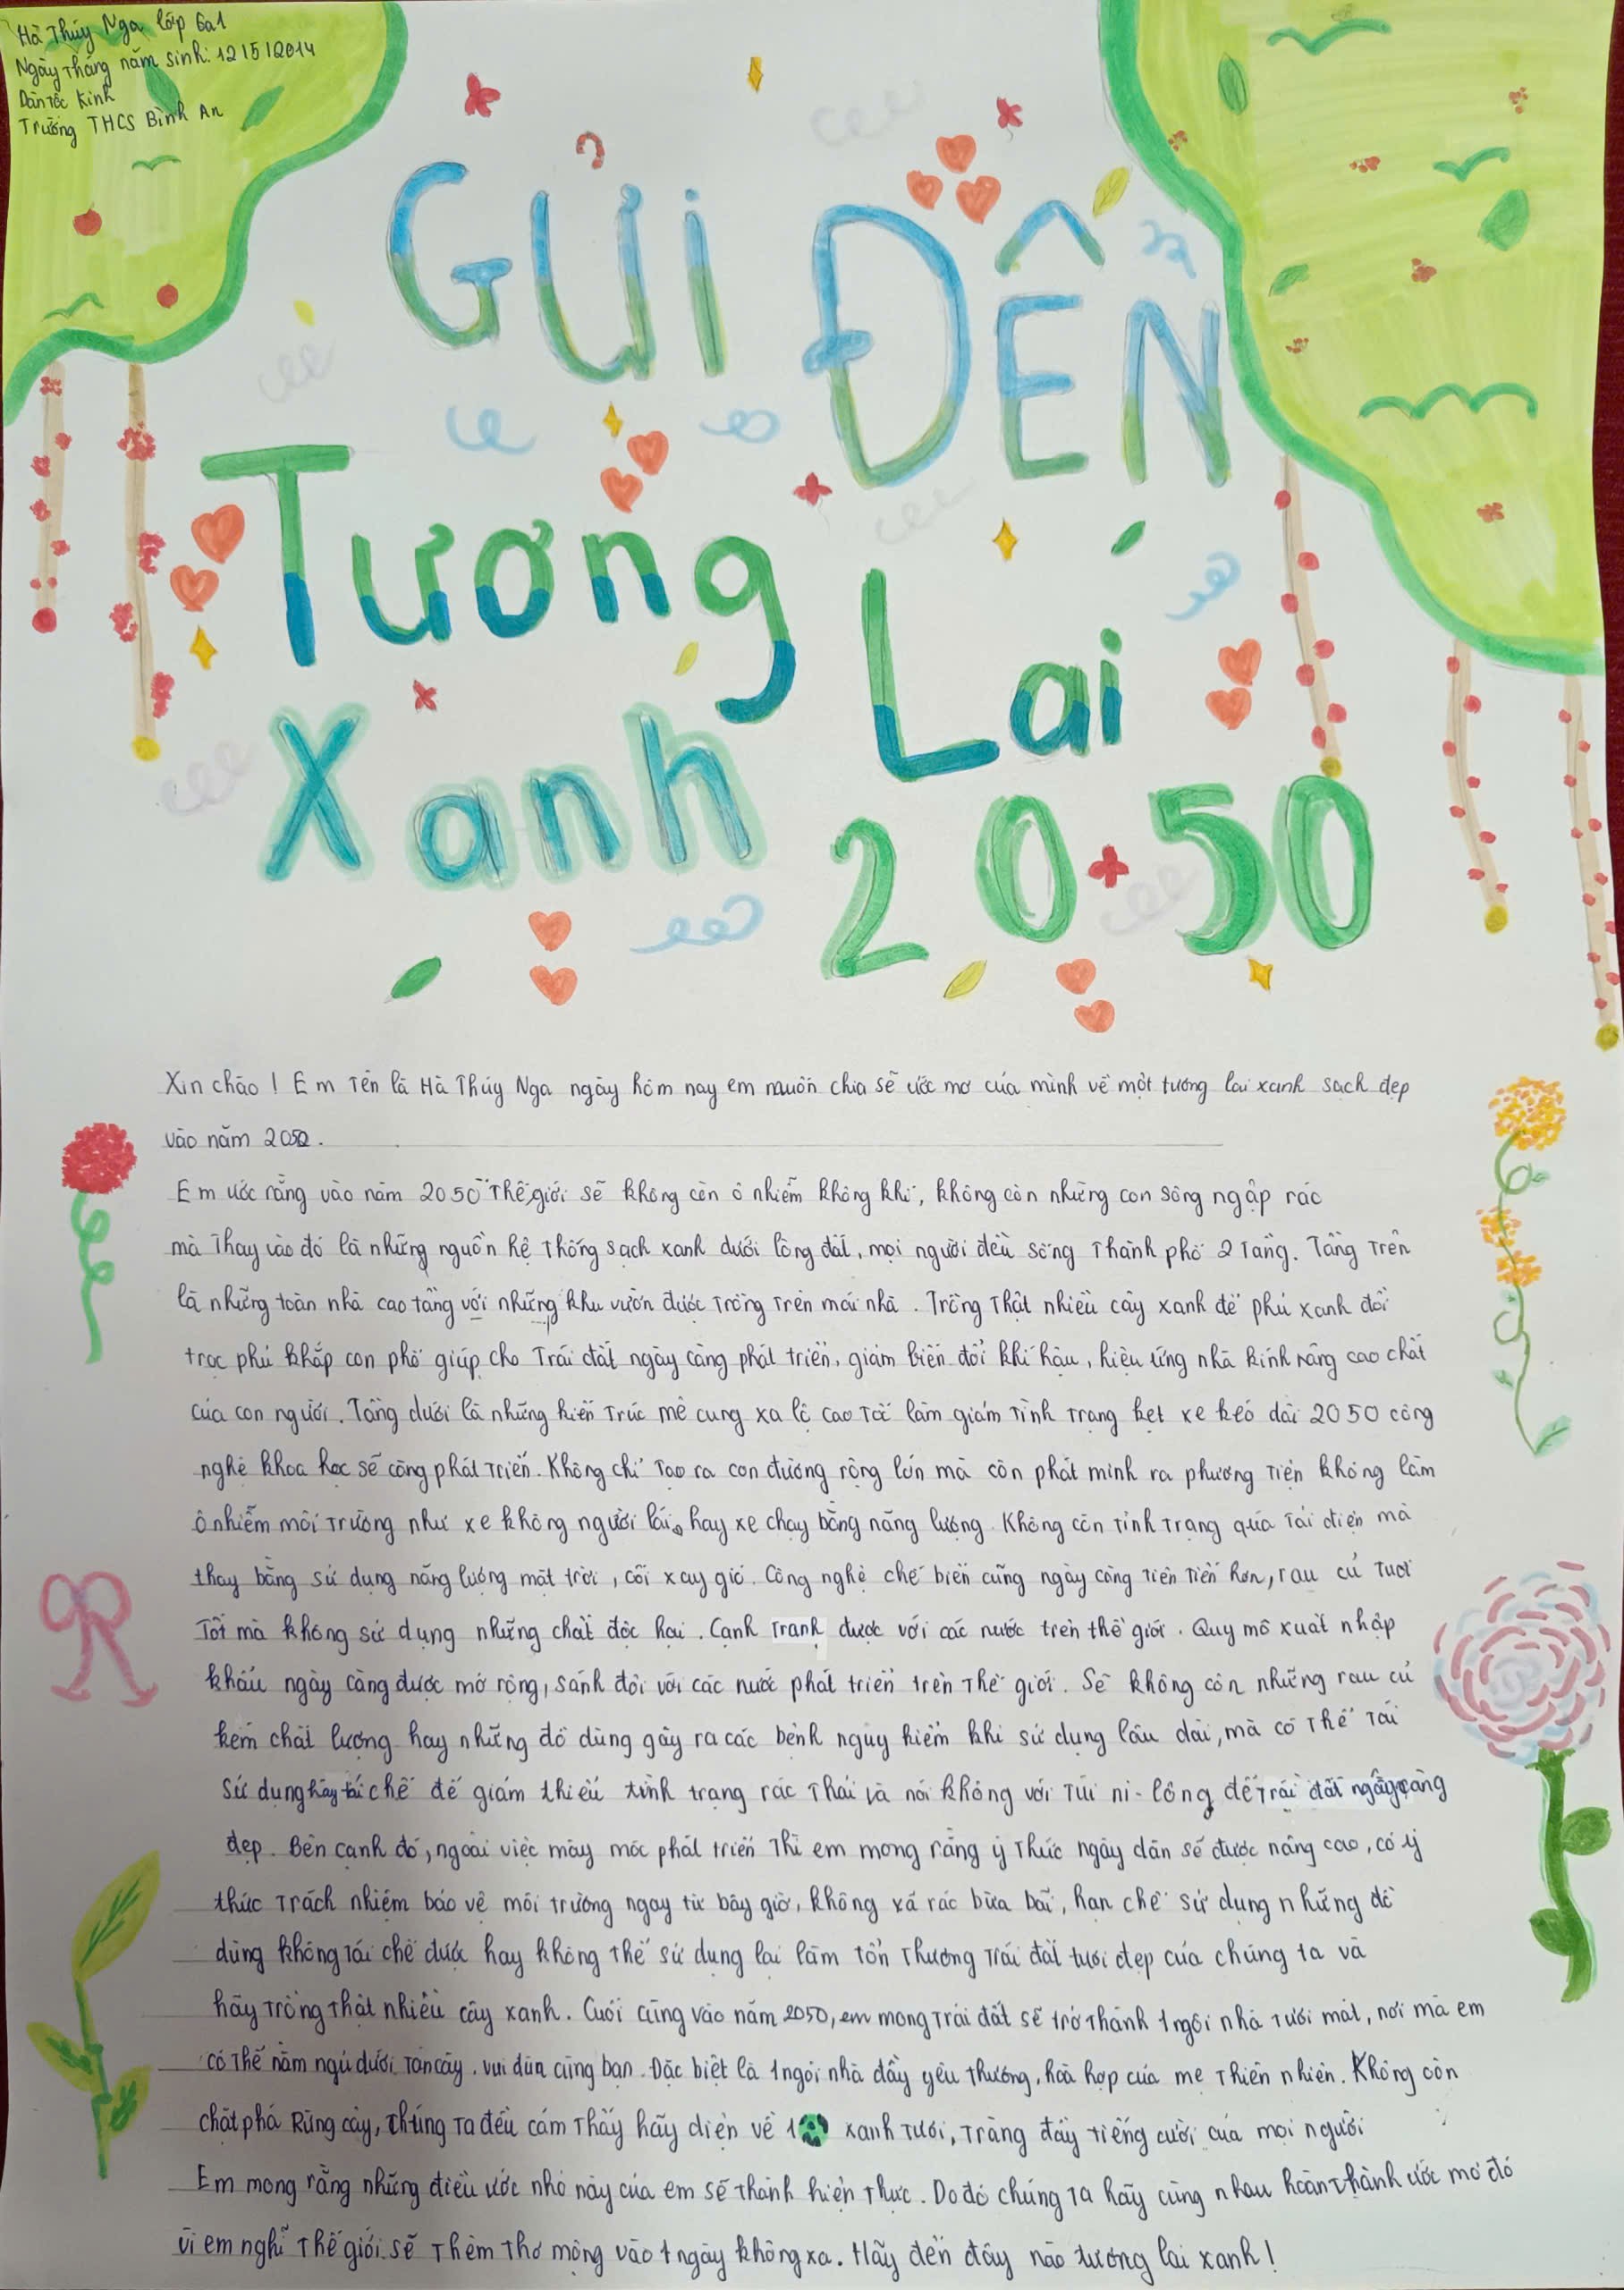 Hà Thúy Nga lớp 6a1
Ngày tháng năm sinh: 12/5/2014
Dân tộc Kinh
Trường THCS Bình An
GửI ĐẾN
Tương Lai
Xanh 2050
Xin chào ! Em tên là Hà Thúy Nga ngày hôm nay em muốn chia sẽ ước mơ của mình về một tương lai xanh sạch đẹp
vào năm 2050.
Em ước rằng vào năm 2050 thế giới sẽ không còn ô nhiễm không khí, không còn những con sông ngập rác
mà thay vào đó là những nguồn hệ thống sạch xanh dưới lòng đất, mọi người đều sống thành phố 2 tầng. Tầng trên
là những toàn nhà cao tầng với những khu vườn được trồng trên mái nhà. Trồng thật nhiều cây xanh để phủ xanh đồi
trọc phủ khắp con phố giúp cho Trái đất ngày càng phát triển, giảm biến đổi khí hậu, hiệu ứng nhà kính nâng cao chất
của con người. Tầng dưới là những kiến trúc mê cung xa lộ cao tốc làm giảm tình trạng kẹt xe kéo dài 2050 công
nghệ khoa học sẽ càng phát triển. Không chỉ tạo ra con đường rộng lớn mà còn phát minh ra phương tiện không làm
ô nhiễm môi trường như xe không người lái, hay xe chạy bằng năng lượng. Không còn tình trạng quá tải điện mà
thay bằng sử dụng năng lượng mặt trời, cối xay gió. Công nghệ chế biến cũng ngày càng tiên tiến hơn, rau củ tươi
tốt mà không sử dụng những chất độc hại. Cạnh tranh được với các nước trên thế giới. Quy mô xuất nhập
khẩu ngày càng được mở rộng, sánh đôi với các nước phát triển trên thế giới. Sẽ không còn những rau củ
kém chất lượng hay những đồ dùng gây ra các bệnh nguy hiểm khi sử dụng lâu dài, mà có thể tái
sử dụng hay tái chế để giảm thiểu tình trạng rác thải và nói không với túi ni-lông để trái đất ngày càng
đẹp. Bên cạnh đó, ngoài việc máy móc phát triển thì em mong rằng ý thức ngày dân sẽ được nâng cao, có ý
thức trách nhiệm bảo vệ môi trường ngay từ bây giờ, không xả rác bừa bãi, hạn chế sử dụng những đồ
dùng không tái chế được hay không thể sử dụng lại làm tổn thương trái đất tươi đẹp của chúng ta và
hãy trồng thật nhiều cây xanh. Cuối cùng vào năm 2050, em mong trái đất sẽ trở thành 1 ngôi nhà tươi mát, nơi mà em
có thể nằm ngủ dưới tán cây, vui đùa cùng bạn. Đặc biệt là 1 ngôi nhà đầy yêu thương, hoà hợp của mẹ thiên nhiên. Không còn
chặt phá Rừng cây, chúng ta đều cảm thấy hãy diện về 1 xanh tươi, tràng đầy tiếng cười của mọi người
Em mong rằng những điều ước nhỏ này của em sẽ thành hiện thực. Do đó chúng ta hãy cùng nhau hoàn thành ước mơ đó
vì em nghĩ thế giới sẽ thêm thơ mộng vào 1 ngày không xa. Hãy đến đây nào tương lai xanh!